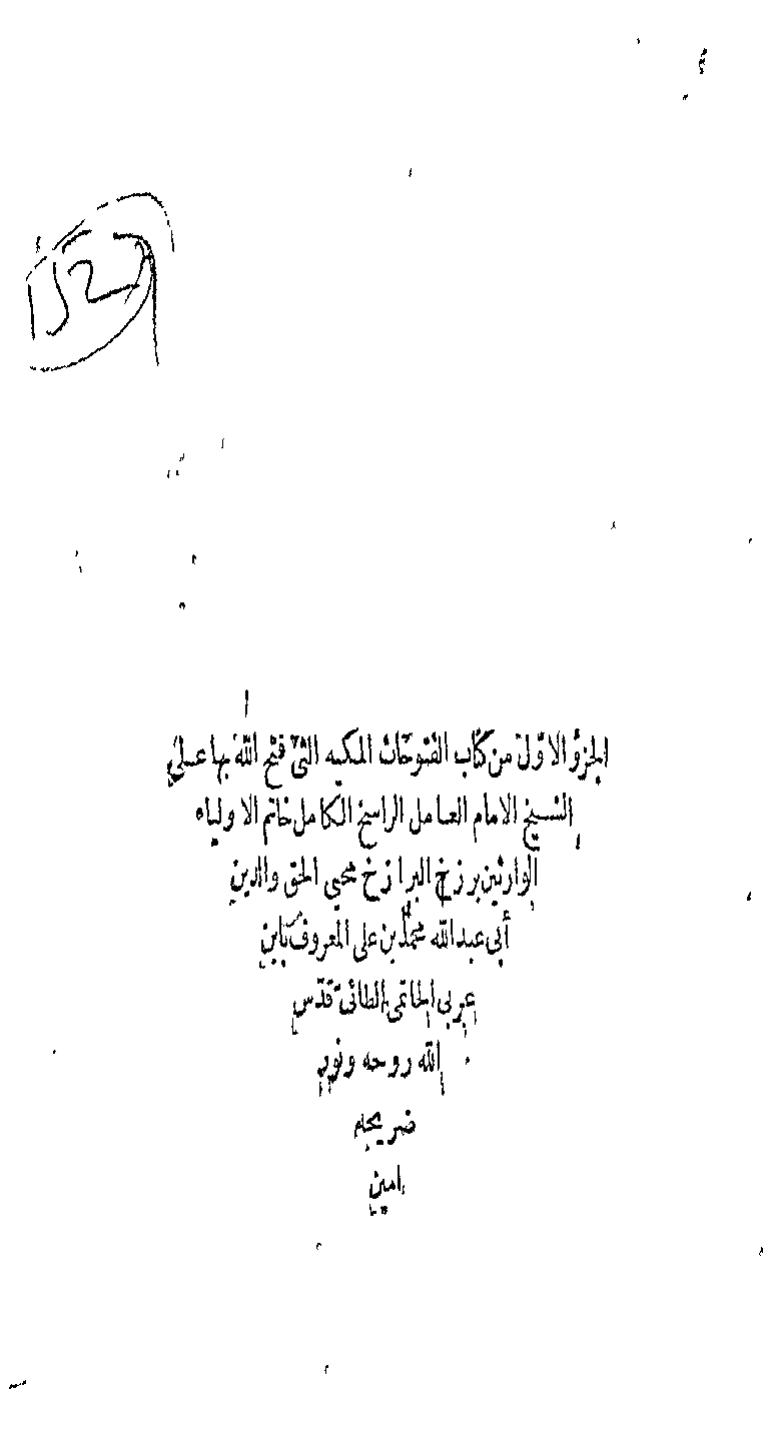 الجزؤ الاوّل من كتاب الفتوحات المكيه التى فتح الله بها على
الشيخ الامام العامل الراسخ الكامل خاتم الاولياء
الوارثين برزخ البرازخ محيى الحق والدين
أبى عبدالله محمد بن على المعروف بابن
عربى الحاتمى الطائى قدّس
الله روحه ونور
ضريحه
امين